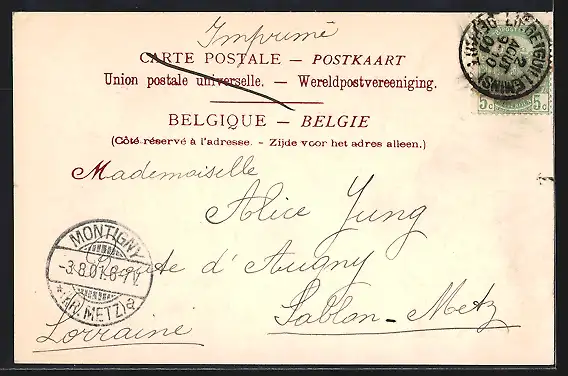 Imprimé
CARTE POSTALE — POSTKAART
Union postale universelle. — Wereldpostvereeniging.
BELGIQUE — BELGIE
(Côté réservé à l'adresse. - Zijde voor het adres alleen.)
5c 5c
Mademoiselle
Alice Jung
Route d'Augny
Sablon-Metz
Lorraine
MONTIGNY
-3.8.01.6-7V.
(KR. METZ) a